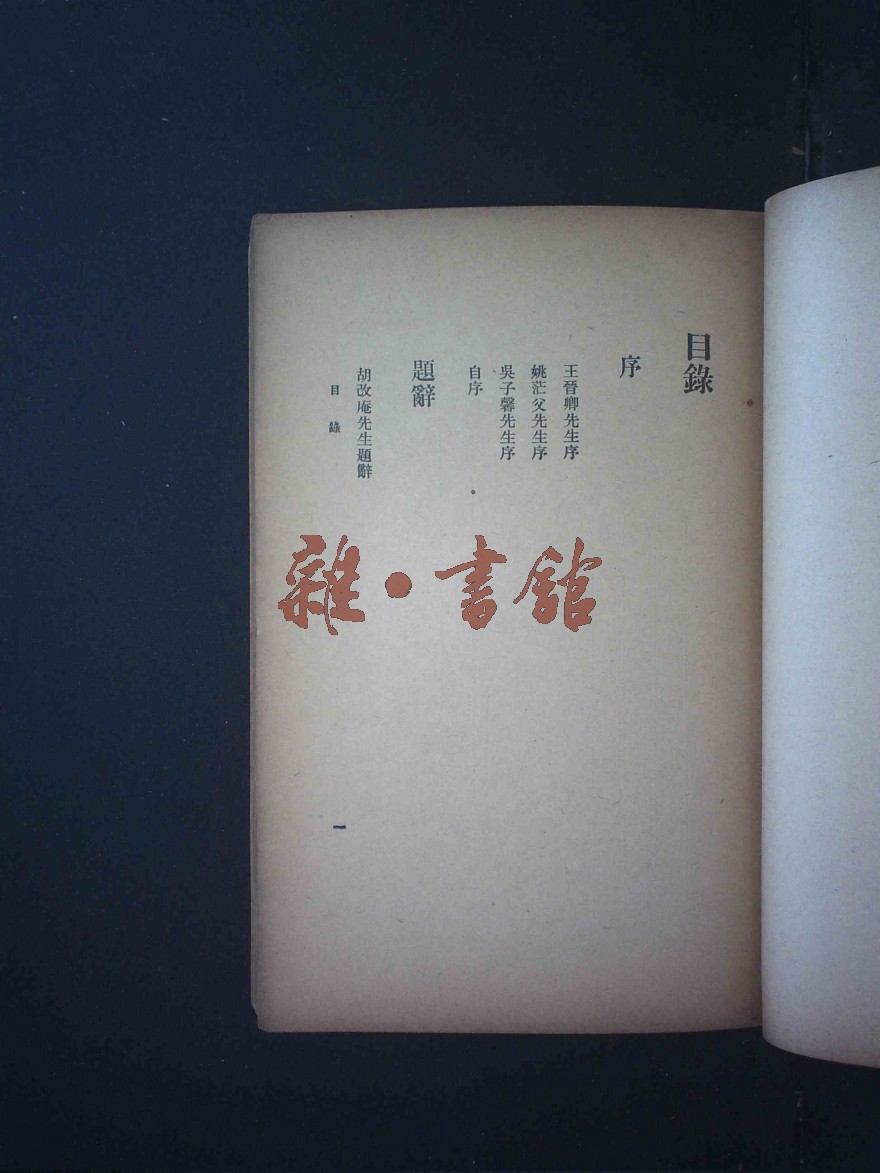 目錄
序
王晉卿先生序
姚茫父先生序
吳子馨先生序
自序
題辭
胡改庵先生題辭
目錄
一
雜·書館